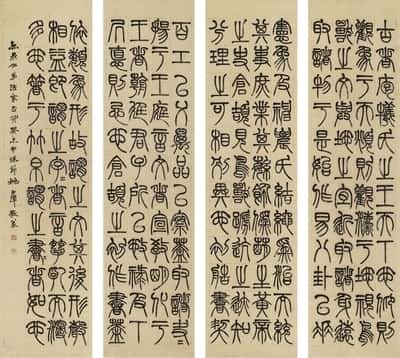 古者庖犧氏之王天下也仰則
觀象于天俯則觀法于地視鳥
獸之文與地之宜近取諸身遠
取諸物于是始作易八卦以垂
憲象及神農氏結繩為治而統
其事庶業其繁飾偽萌生黃帝
之史倉頡見鳥獸蹄迒之跡知
分理之可相別異也初造書契
百工以乂萬品以察蓋取諸夬〻
揚于王庭言文者宣教明化于
王者朝廷君子所以施祿及下
居德則忌也倉頡之初作書蓋
依類象形故謂之文其後形聲
相益即謂之字〻者言孳乳而浸
多也著于竹帛謂之書〻者如也
法家 癸未中秋節